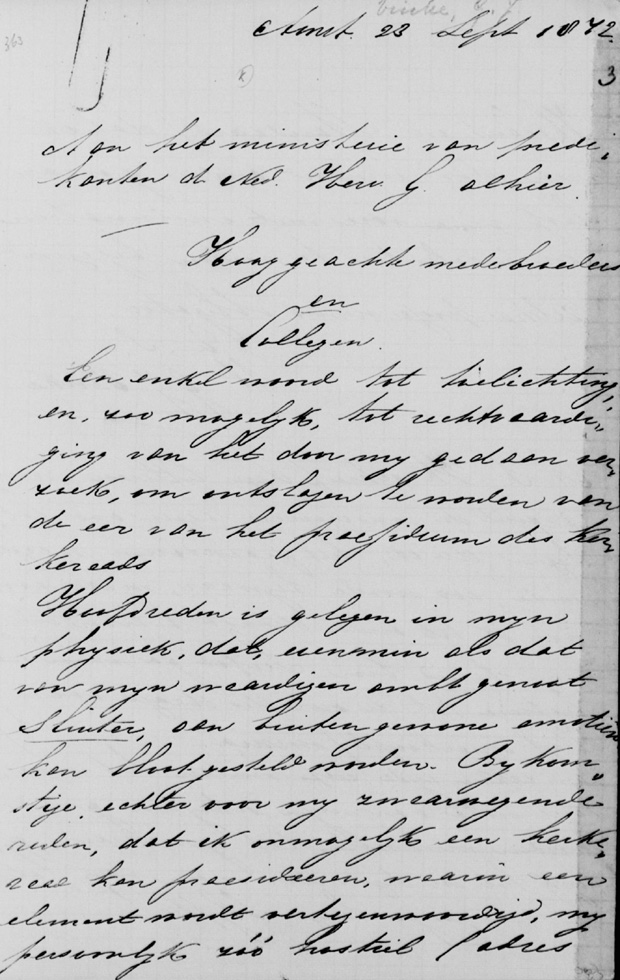 Amst. 23 Sept 1872.
3
Aan het ministerie van predi-
kanten d. Ned. Herv. G. alhier.
Hooggeachte medebroeders
en
Collegen.
Een enkel woord tot toelichting,
en, zoo mogelijk, tot rechtvaardi-
ging van het door my gedaan ver-
zoek, om ontslagen te worden van
de eer van het praesidium des ker-
keraads
Hoofdreden is gelegen in myn
physiek, dat, evenmin als dat
van myn waardigen ambtgenoot
Sluiter, aan buitengewone emotiën
kan blootgesteld worden. Bykom-
stige, echter voor my zwaarwegende
reden, dat ik onmogelyk een kerke-
raad kan praesideeren, waarin een
element wordt vertegenwoordigd, my
persoonlyk zóó hostiel (adres